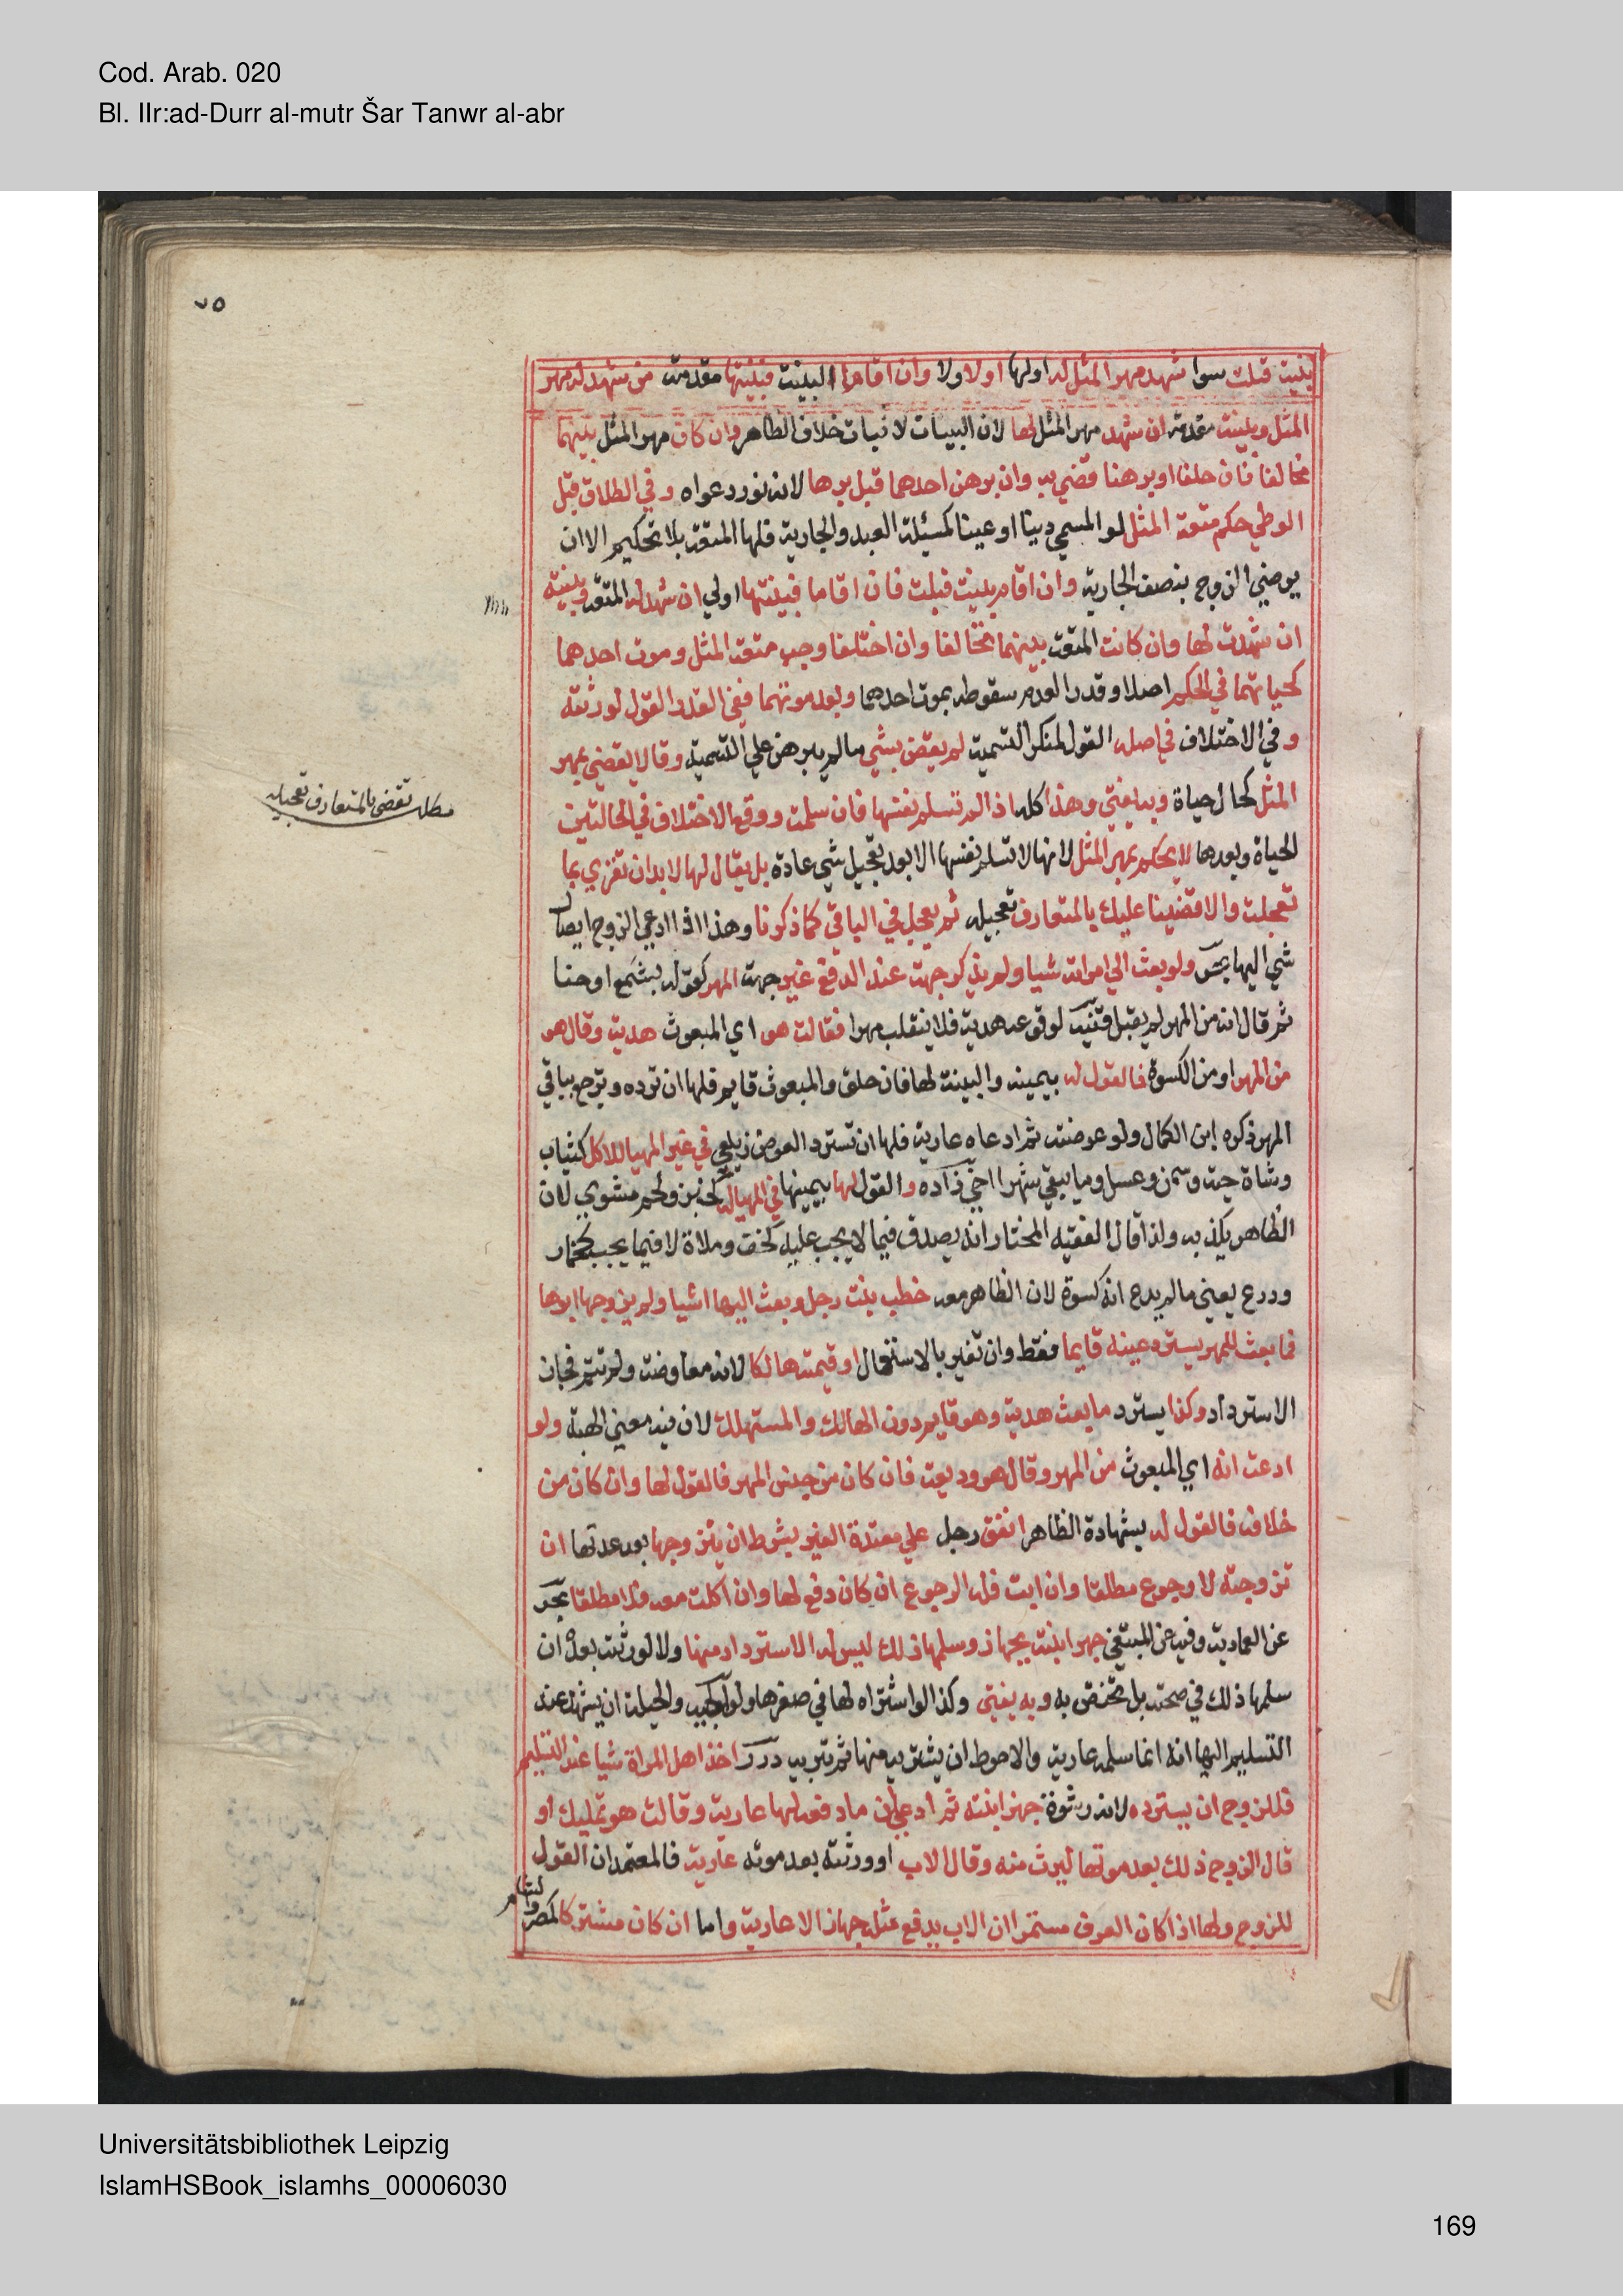 Cod. Arab. 020
Bl. IIr:ad-Durr al-mutr Šar Tanwr al-abr
٧٥
بينة قبلت سوا شهد مهر المثل له او لها او لا ولا وان اقاما البينة فبينتها مقدمة من شهد له مهر
المثل وبينته مقدمة ان شهد مهر المثل لها لان البينات لاثبات خلاف الظاهر وان كان مهر المثل بينهما
تحالفا فان حلفا او برهنا قضي به وان برهن احدهما قبل برهانه لانه نور دعواه وفي الطلاق قبل
الوطي حكم متعة المثل لو المسمي دينا او عينا كمسئلة العبد والجارية فلها المتعة بلا تحكيم الا ان
يرضي الزوج بنصف الجارية وان اقام بينة قبلت فان اقاما فبينتها اولي ان شهد له المتعة وبينته
ان شهدت لها وان كانت المتعة بينهما تحالفا وان اختلفا وجب متعة المثل وموت احدهما
كحياتهما في الحكم اصلا وقدرا لعدم سقوطه بموت احدهما وبعد موتهما ففي القدر القول لورثته
وفي الاختلاف في اصله القول لمنكر التسمية لم يقض بشي مالم يبرهن علي التسمية وقالا يقضي بمهر
المثل كحال حياة وبه يفتي وهذا كله اذا لم تسلم نفسها فان سلمت ووقع الاختلاف في الحالتين
مطلب تقضي بالمتعارف تعجيله
الحياة وبعدها لا يحكم بمهر المثل لانها لا تسلم نفسها الا بعد تعجيل شي عادة بل يقال لها لا بد ان تقري بما
تعجلت والا قضينا عليك بالمتعارف تعجيله ثم يعجل في الباقي كما ذكرنا وهذا اذا ادعي الزوج ايصال
شي اليها بحر ولو بعث الي امراته شيا ولم يذكر جهة عند الدفع غير جهة المهر كقوله بشمع او حنا
ثم قال انه من المهر لم يقبل قنية لوقوعه هدية فلا ينقلب مهرا فقالت هو اي المبعوث هدية وقال هو
من المهر او من الكسوة فالقول له بيمينه والبينة لها فان حلف والمبعوث قايم فلها ان ترده وترجع بباقي
المهر ذكره ابن الكمال ولو عوضته ثم ادعاه عارية فلها ان تسترد العوض زيلعي في غير المهيا للاكل كثياب
وشاة حية وسمن وعسل وما يبقي شهرا اخي زاده والقول لها بيمينها في المهيا له كخبز ولحم مشوي لان
الظاهر يكذبه ولذا قال الفقيه المختار انه يصدق فيما لا يجب عليه كخف وملاة لا فيما يجب كخمار
ودرع يعني مالم يدع انه كسوة لان الظاهر معه خطب بنت رجل وبعث اليها اشيا ولم يزوجها ابوها
فما بعث للمهر يسترد عينه قايما فقط وان تغير بالاستعمال او قيمته هالكا لانه معاوضة ولم تتم فجاز
الاسترداد وكذا يسترد ما بعث هدية وهو قايم دون الهالك والمستهلك لان فيه معني الهبة ولو
ادعت انه اي المبعوث من المهر وقال هو وديعة فان كان من جنس المهر فالقول لها وان كان من
خلافه فالقول له بشهادة الظاهر انفق رجل علي معتدة الغير بشرط ان يتزوجها بعد عدتها ان
تزوجته لا رجوع مطلقا وان ابت فله الرجوع ان كان دفع لها وان اكلت معه فلا مطلقا بحر
عن العمادية وفيه عن المبتغي جهز ابنته بجهاز وسلمها ذلك ليس له الاسترداد منها ولا لورثته بعده ان
سلمها ذلك في صحته بل تختص به وبه يفتي وكذا لو اشتراه لها في صغرها ولوالجية والحيلة ان يشهد عند
التسليم اليها انه انما سلمه عارية والاحوط ان يشتريه منها ثم تبريه درر اخذ اهل المراة شيا عند التسليم
فللزوج ان يسترده لانه رشوة جهز ابنته ثم ادعي ان ما دفعه لها عارية وقالت هو تمليك او
قال الزوج ذلك بعد موتها ليرث منه وقال الاب او ورثته بعد موته عارية فالمعتمد ان القول
للزوج ولها اذا كان العرف مستمرا ان الاب يدفع مثله جهازا لا عارية واما ان كان مشتركا كمصر والشام
Universitätsbibliothek Leipzig
IslamHSBook_islamhs_00006030
169